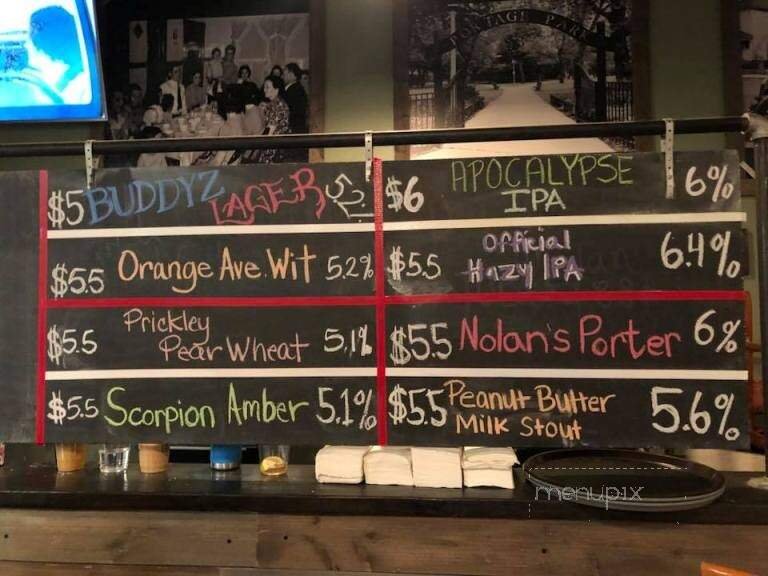 PORTAGE PARK
$5 BUDDYZ LAGER 5.2%
$5.5 Orange Ave. Wit 5.2%
$5.5 Prickley
Pear Wheat 5.1%
$5.5 Scorpion Amber 5.1%
$6 APOCALYPSE
IPA 6%
$5.5 Official
Hazy IPA 6.4%
$5.5 Nolan's Porter 6%
$5.5 Peanut Butter
Milk Stout 5.6%
menupix